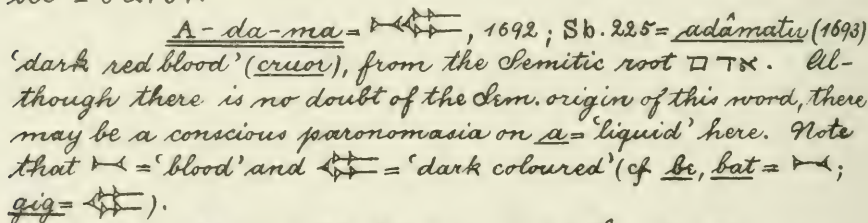 A-da-ma = 𒁁𒈪, 1692; Sb. 225 = adâmatu (1693)
‘dark red blood’ (cruor), from the Semitic root אדם. Al-
though there is no doubt of the Sem. origin of this word, there
may be a conscious paronomasia on a = ‘liquid’ here. Note
that 𒁁 = ‘blood’ and = ‘dark coloured’ (cf be, bat = 𒁁;
gig = ).